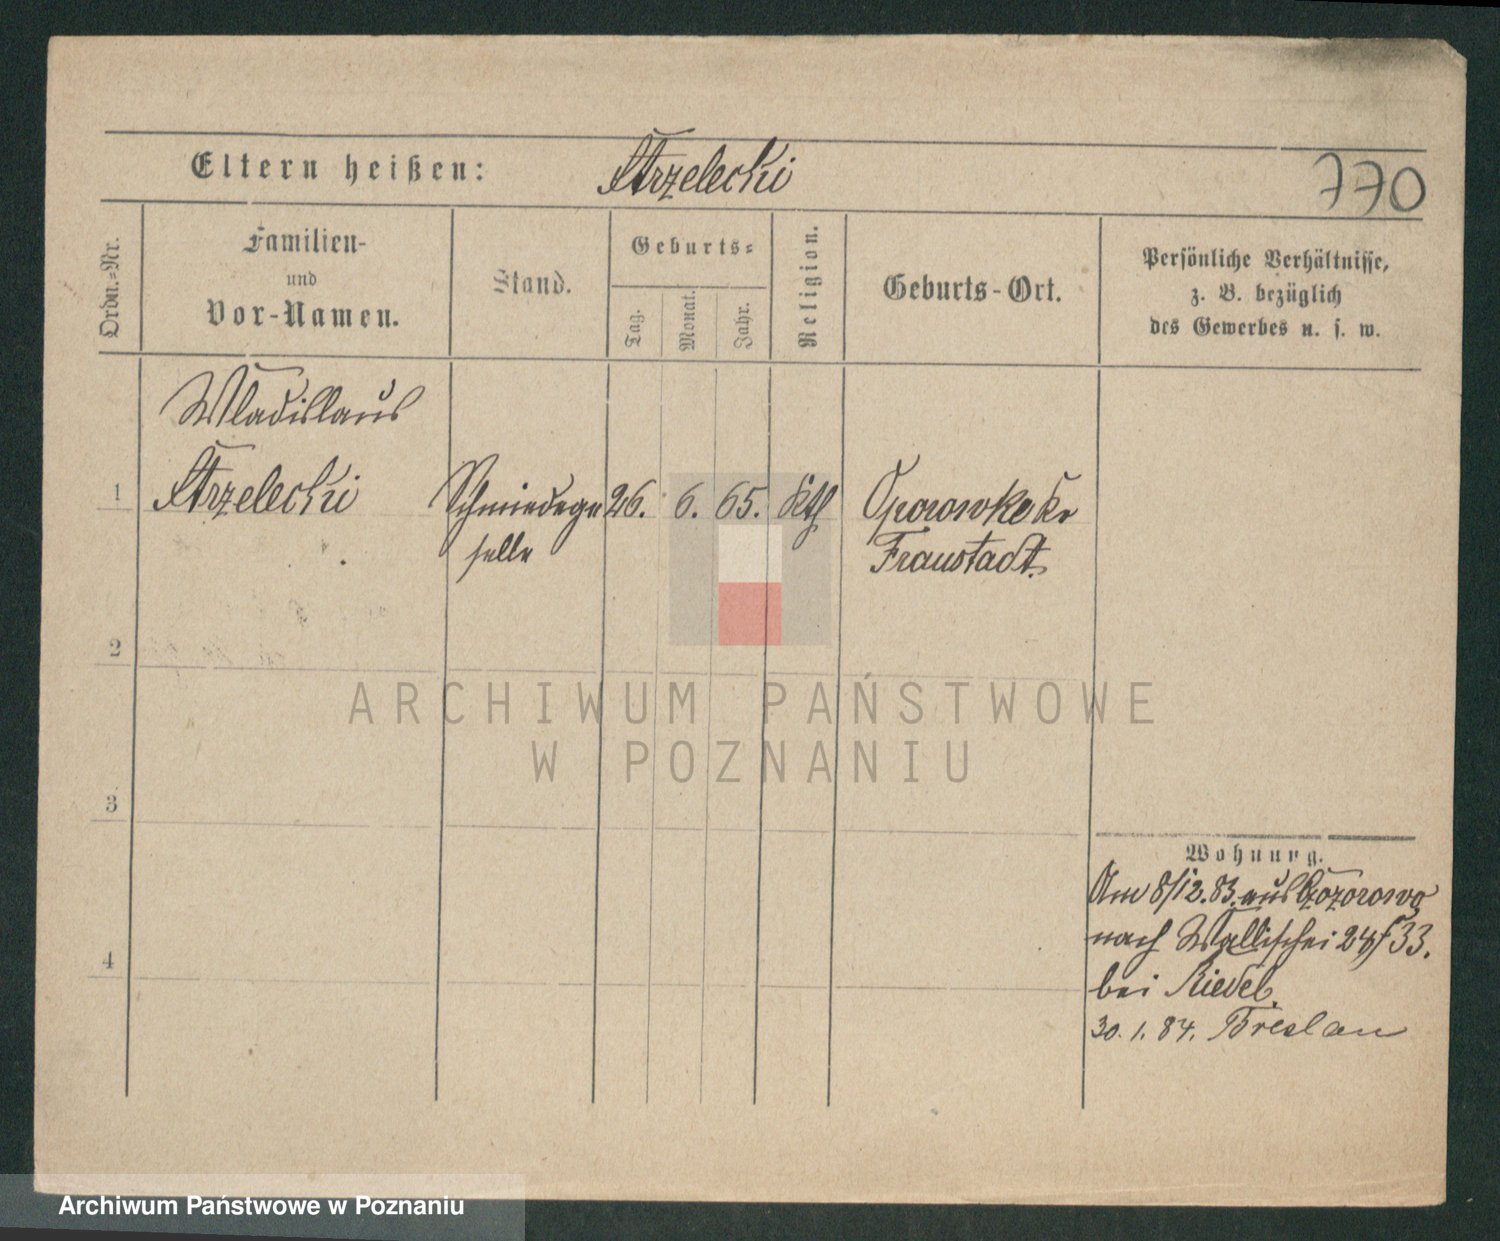 Eltern heißen: Strzelecki
770
Ordn.-Nr.
Familien-
und
Vor-Namen.
Stand.
Geburts-
Tag.
Monat.
Jahr.
Religion.
Geburts-Ort.
Persönliche Verhältnisse,
z. B. bezüglich
des Gewerbes u. s. w.
Wladislaus
1 Strzelecki Schmiedege 26. 6. 65. kth Oporowke Kr
selle Fraustadt.
2
3
4
Wohnung.
Am 8/12.83. aus
nach Wallischei 33.
bei Riedel.
30. 1. 84. Breslau
ARCHIWUM PAŃSTWOWE
W POZNANIU
Archiwum Państwowe w Poznaniu